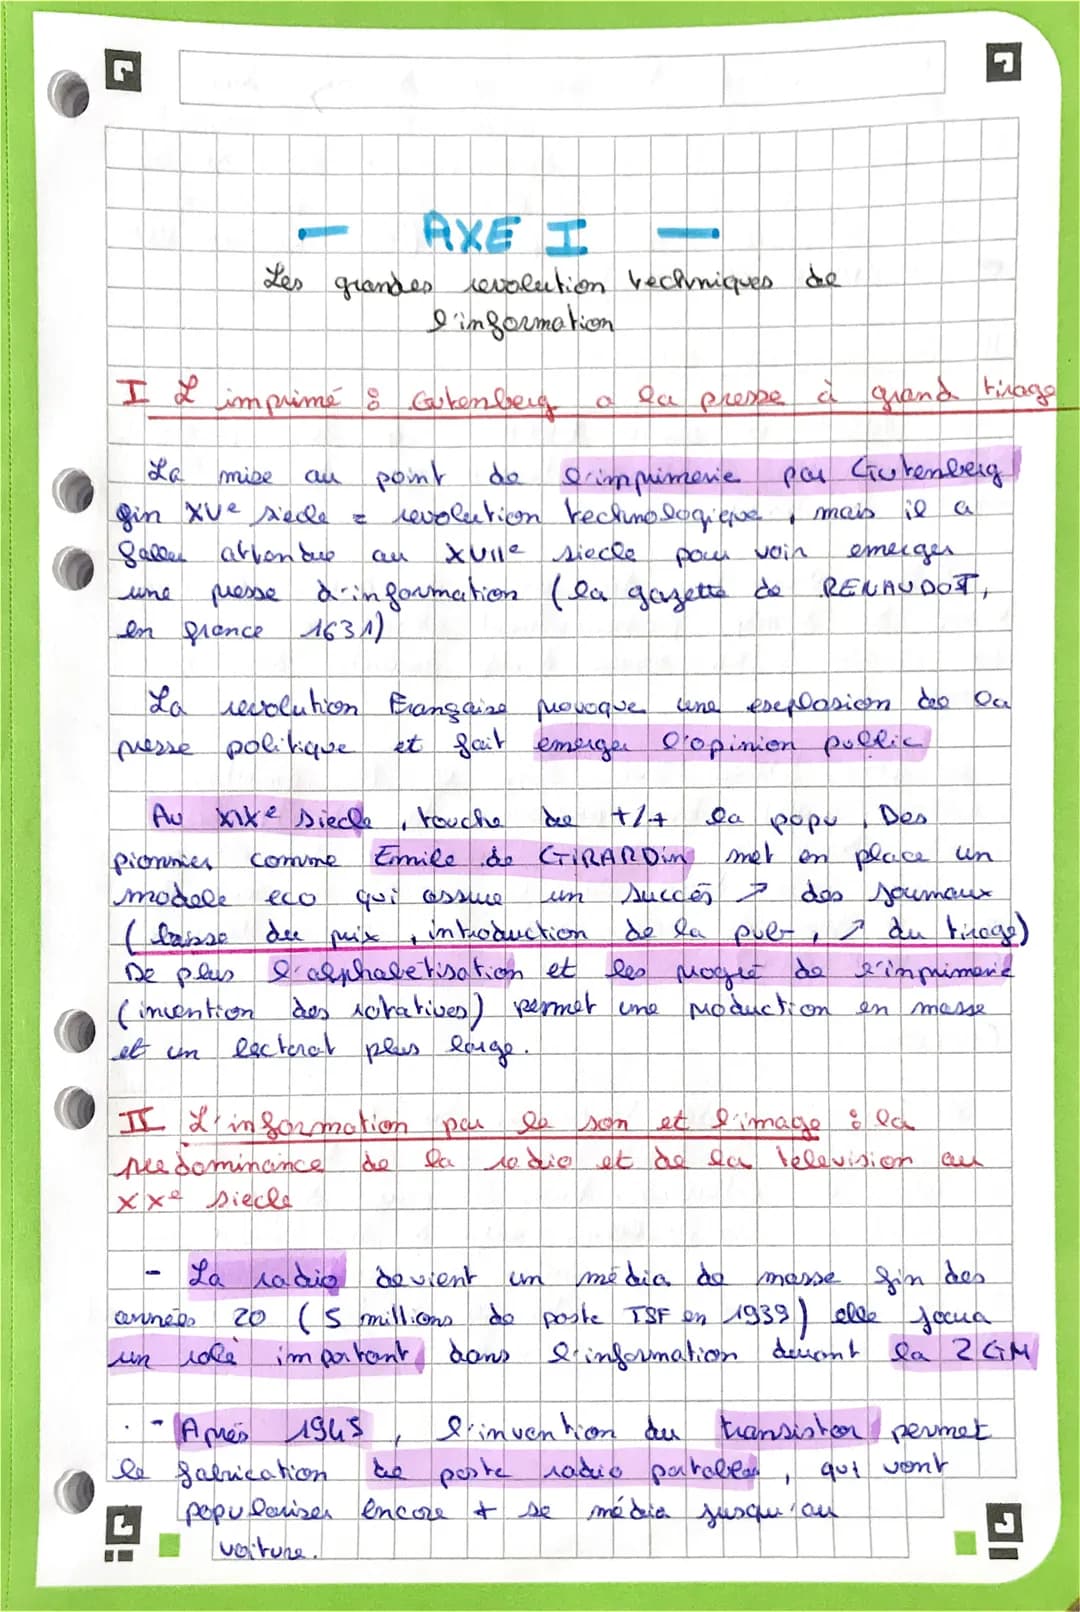 AXE I
Les grandes revolution techniques de
l'information
I L'imprimé : Gutenberg a la presse à grand tirage
La mise au point de l'imprimerie par Gutenberg
fin XVe siecle = revolution technologique, mais il a
fallu attendre au XVIIe siecle pour voir emerger
une presse d'information (la gazette de RENAUDOT,
en france 1631)
La revolution Française provoque une explosion de la
presse politique et fait emerger l'opinion public
Au XIXe siecle, touche de +/+ la popu, Des
pionnier comme Emile de GIRARDin met en place un
modele eco qui assure un succés ↗ des journaux
(baisse du prix, introduction de la pub, ↗ du tirage)
De plus l'alphabetisation et les progré de l'imprimerie
(invention des rotatives) permet une production en masse
et un lectorat plus large.
II L'information par le son et l'image : la
predominance de la radio et de la television au
XXe siecle
- La radio devient un média de masse fin des
années 20 (5 millions de poste TSF en 1939) elle joua
un role important dans l'information durant la 2GM
- Aprés 1945, l'invention du transistor permet
la fabrication de poste radio portable, qui vont
populariser encore + se média jusqu'au
voiture.